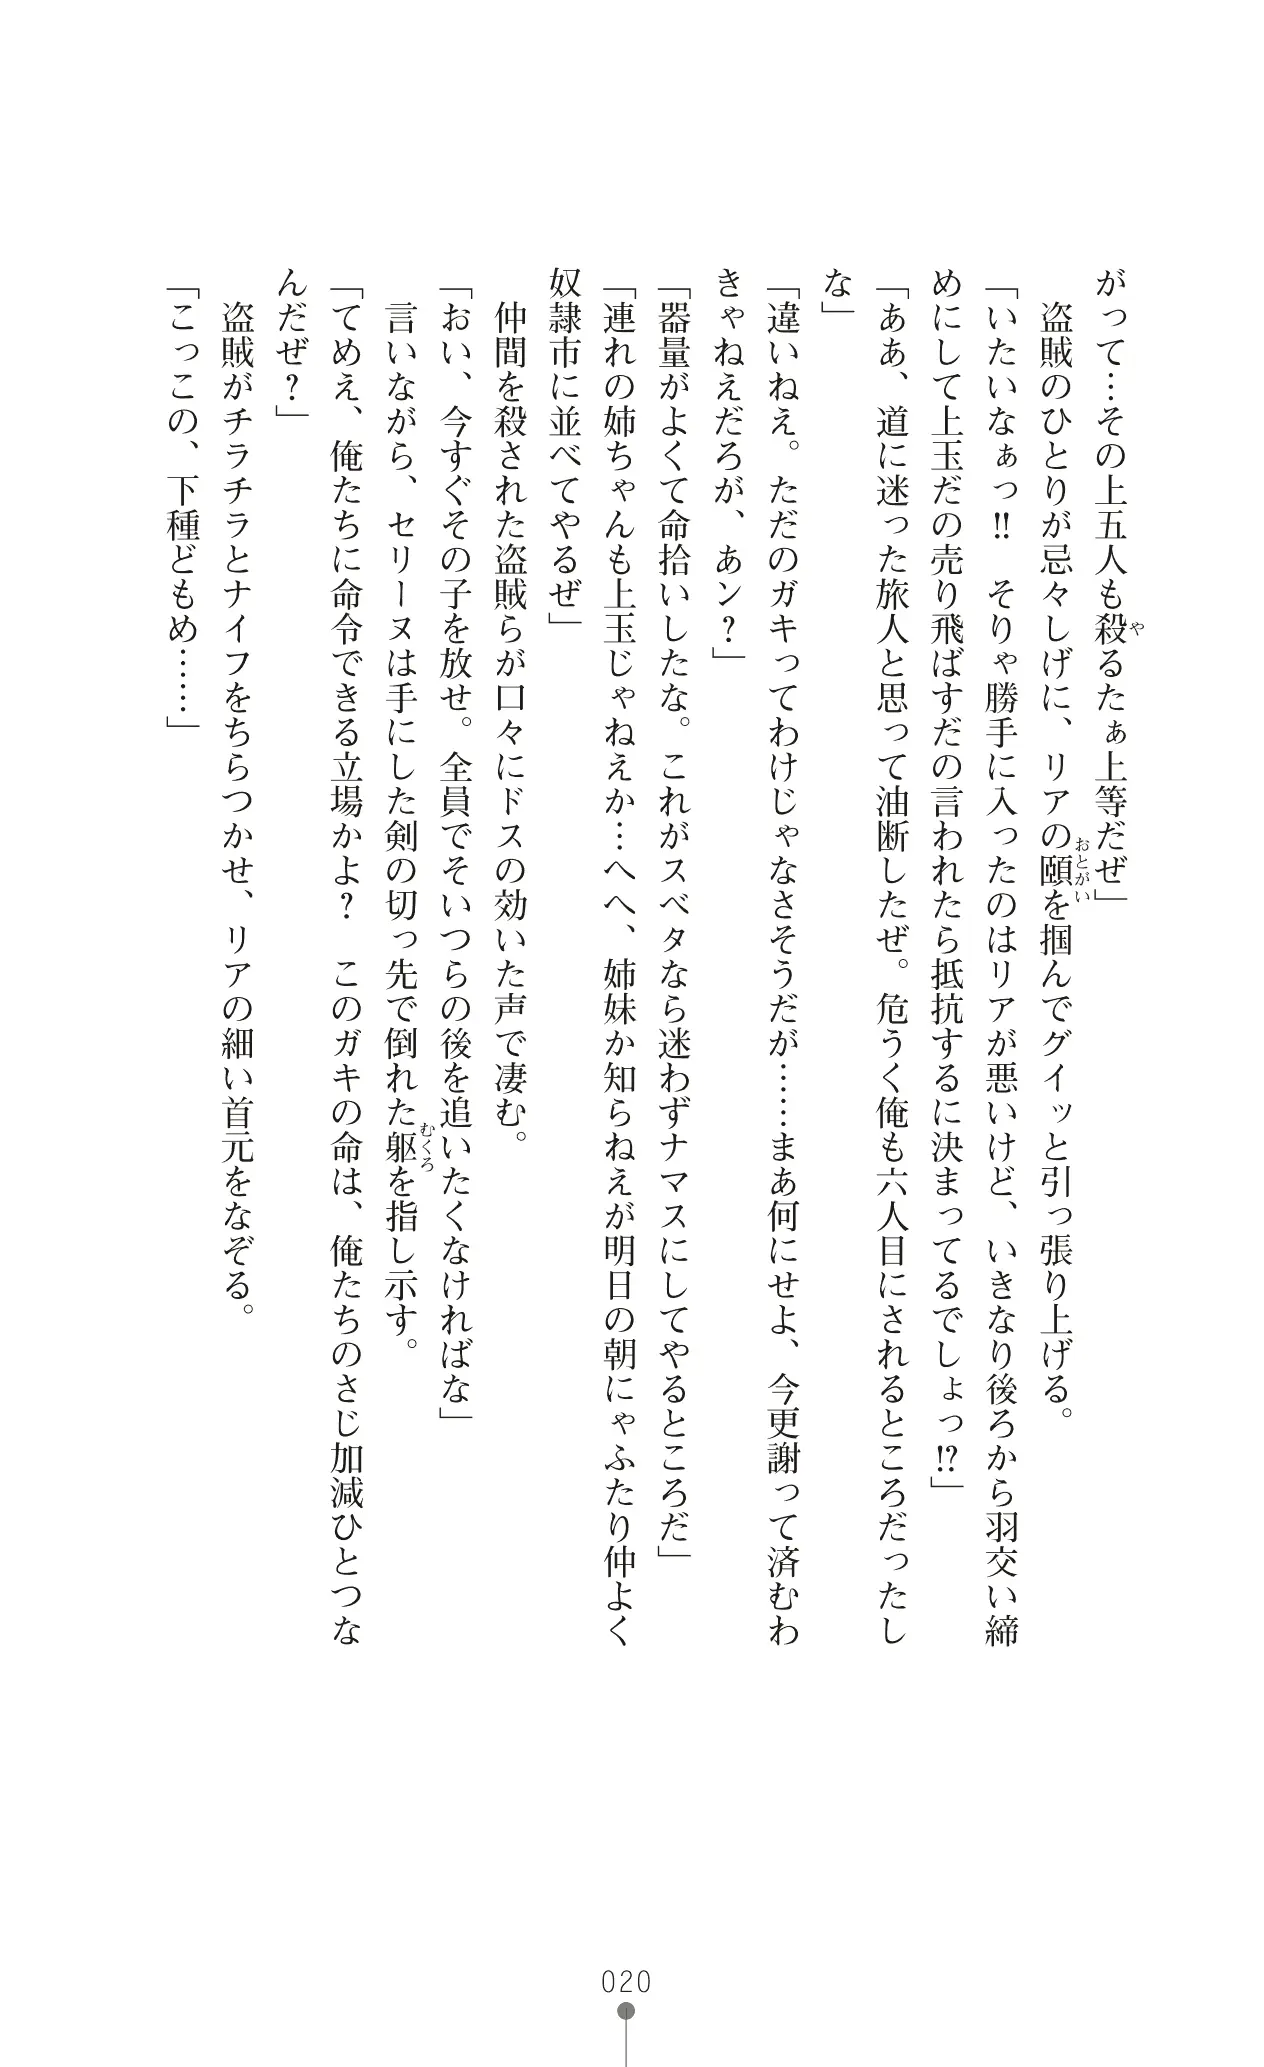 がって…その上五人も殺るたぁ上等だぜ」
　盗賊のひとりが忌々しげに、リアの頤を掴んでグイッと引っ張り上げる。
「いたいなぁっ!!　そりゃ勝手に入ったのはリアが悪いけど、いきなり後ろから羽交い締
めにして上玉だの売り飛ばすだの言われたら抵抗するに決まってるでしょっ!?」
「ああ、道に迷った旅人と思って油断したぜ。危うく俺も六人目にされるところだったし
な」
「違いねえ。ただのガキってわけじゃなさそうだが……まあ何にせよ、今更謝って済むわ
きゃねえだろが、あン？」
「器量がよくて命拾いしたな。これがスベタなら迷わずナマスにしてやるところだ」
「連れの姉ちゃんも上玉じゃねえか…へへ、姉妹か知らねえが明日の朝にゃふたり仲よく
奴隷市に並べてやるぜ」
　仲間を殺された盗賊らが口々にドスの効いた声で凄む。
「おい、今すぐその子を放せ。全員でそいつらの後を追いたくなければな」
　言いながら、セリーヌは手にした剣の切っ先で倒れた躯を指し示す。
「てめえ、俺たちに命令できる立場かよ？　このガキの命は、俺たちのさじ加減ひとつな
んだぜ？」
　盗賊がチラチラとナイフをちらつかせ、リアの細い首元をなぞる。
「こっこの、下種どもめ……」
や
おとがい
むくろ
020